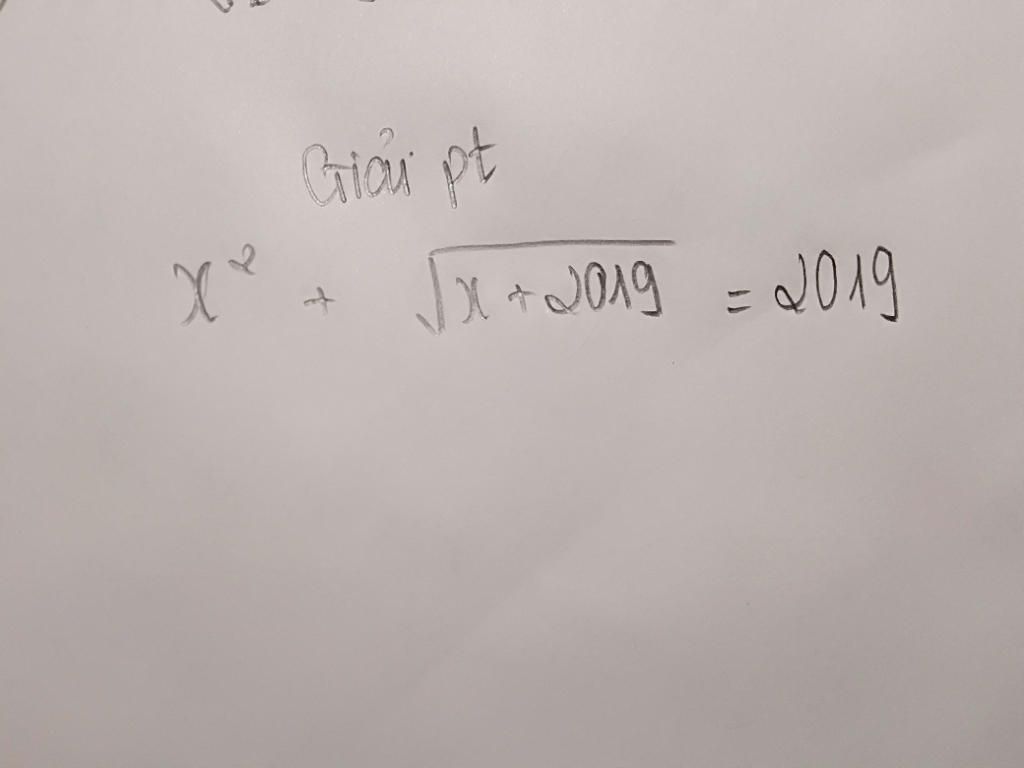 Giải pt
x² + √(x + 2019) = 2019